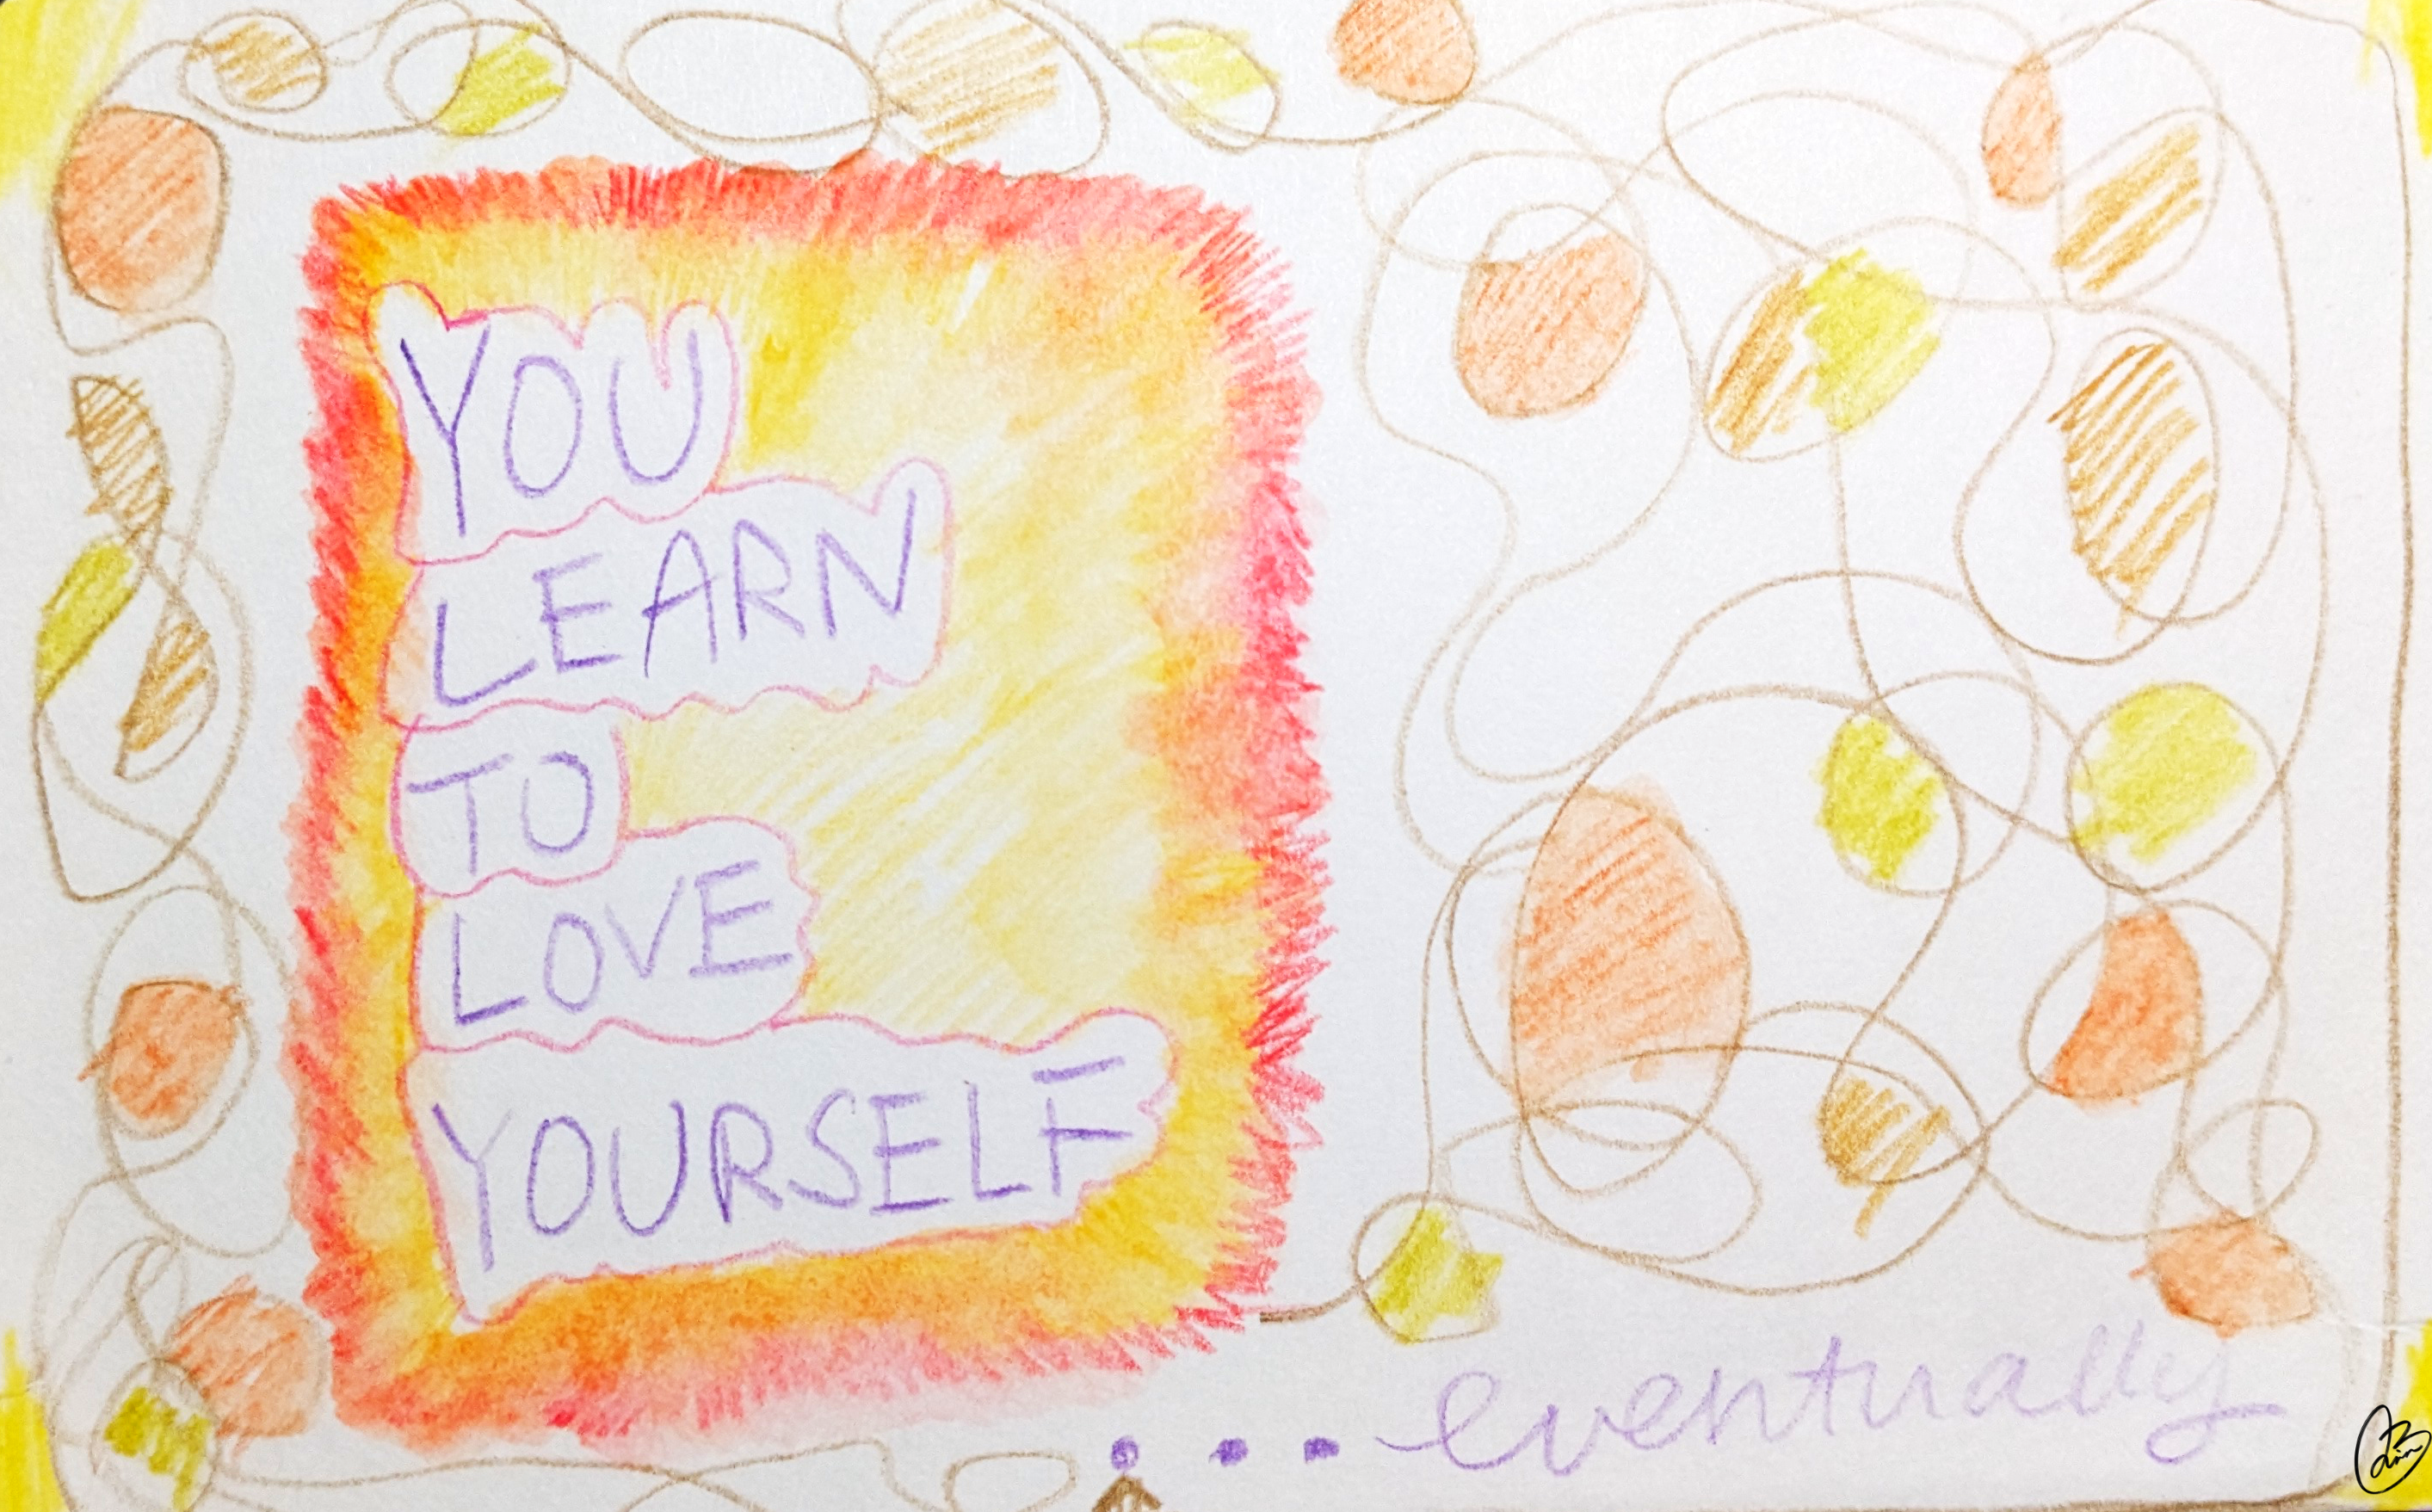 YOU
LEARN
TO
LOVE
YOURSELF
... eventually